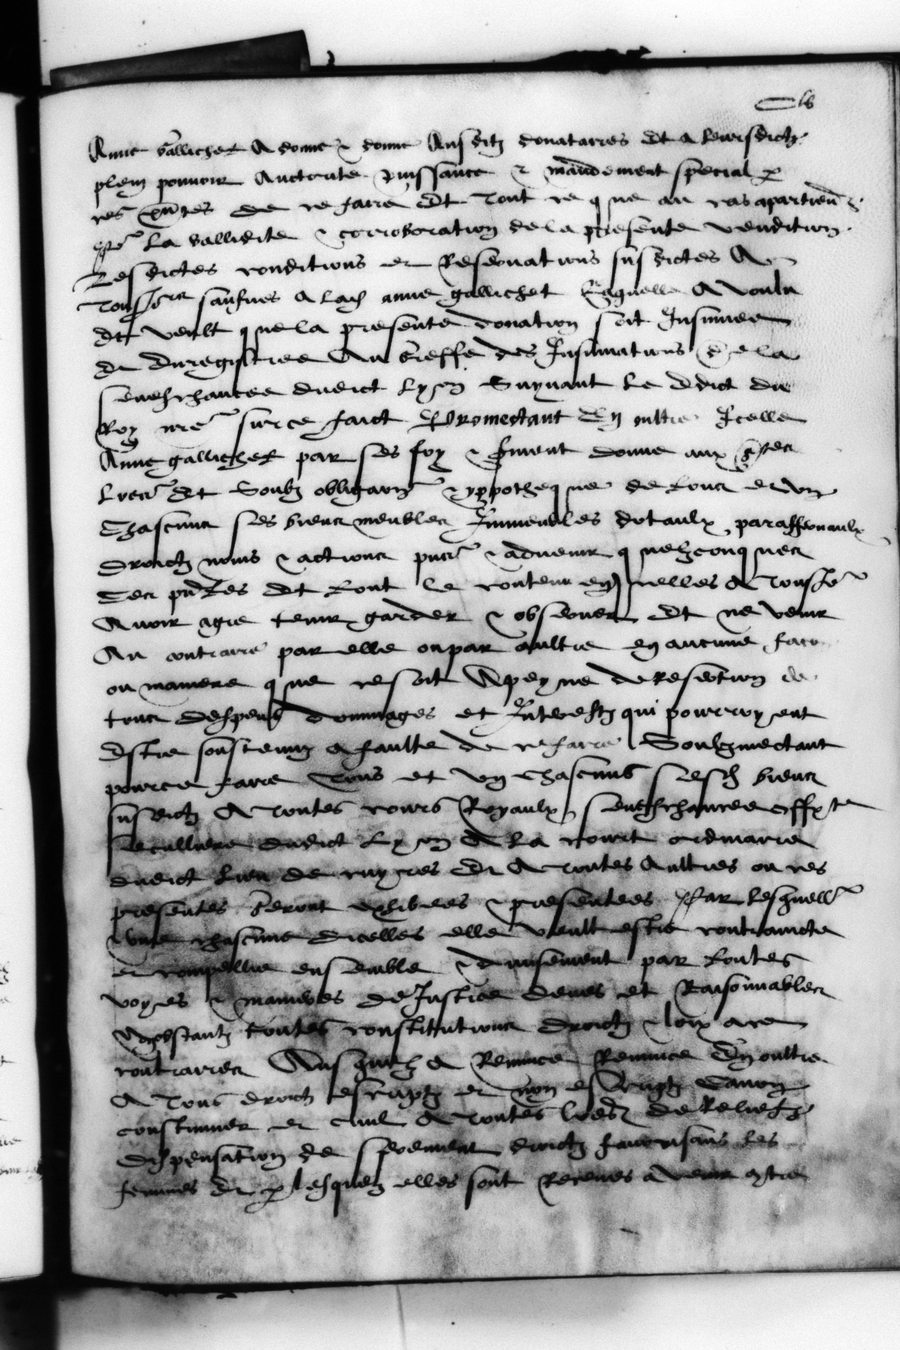 Anne Gallichet a donne & donne ausditz donataires et a leursditz
plein pouvoir auctorite puissance & mandement special
de ce faire et tout ce que au cas apartiendra
la vallidite & corroboration de la presente vendition
lesdictes conditions et reservations susdictes
saufves a lad anne gallichet laquelle a voulu
et veult que la presente donation soit insinuee
et enregistree au greffe des insinuations de la
seneschaucee dudict Lyon suyvant le edict du
Roy nre sur ce faict Promectant en oultre icelle
Anne gallichet par ses foy & serment donne aux
et soubz obligation & yppotheque de tous et ung
chascuns ses biens meubles immeubles dotaulx paraffernaulx
droictz noms & actions pntz & advenir quelzconques
ces pntes et tout le contenu en icelles
avoir agre tenir garder & observer et ne venir
au contraire par elle ou par aultre en aucune facon
ou maniere que ce soit a peyne de refection de
tous despens dommages et interestz qui pourroyent
estre soustenuz a faulte de ce faire Soubzmectant
pource faire tous et ung chascuns sesd biens
susdictz a toutes cours Royaulx seneschaucee
seculliere dudict Lyon a la court ordinaire
dudict lieu et a toutes aultres ou ces
presentes seront exhibees & presentees par lesquelles
& une chascune dicelles elle veult estre contraincte
et compellie ensemble & divisement par toutes
voyes & manieres de justice deues et raisonnables
Nobstantz toutes constitutions droictz & loix a ce
contraires Ausquelz a renonce renonce En oultre
a tous droictz escriptz et non escriptz canon
constumier et civil a toutes lres de reliefz
dispensation de serement droictz favorisans les
femmes et par lesquelz elles sont receues a venir contre